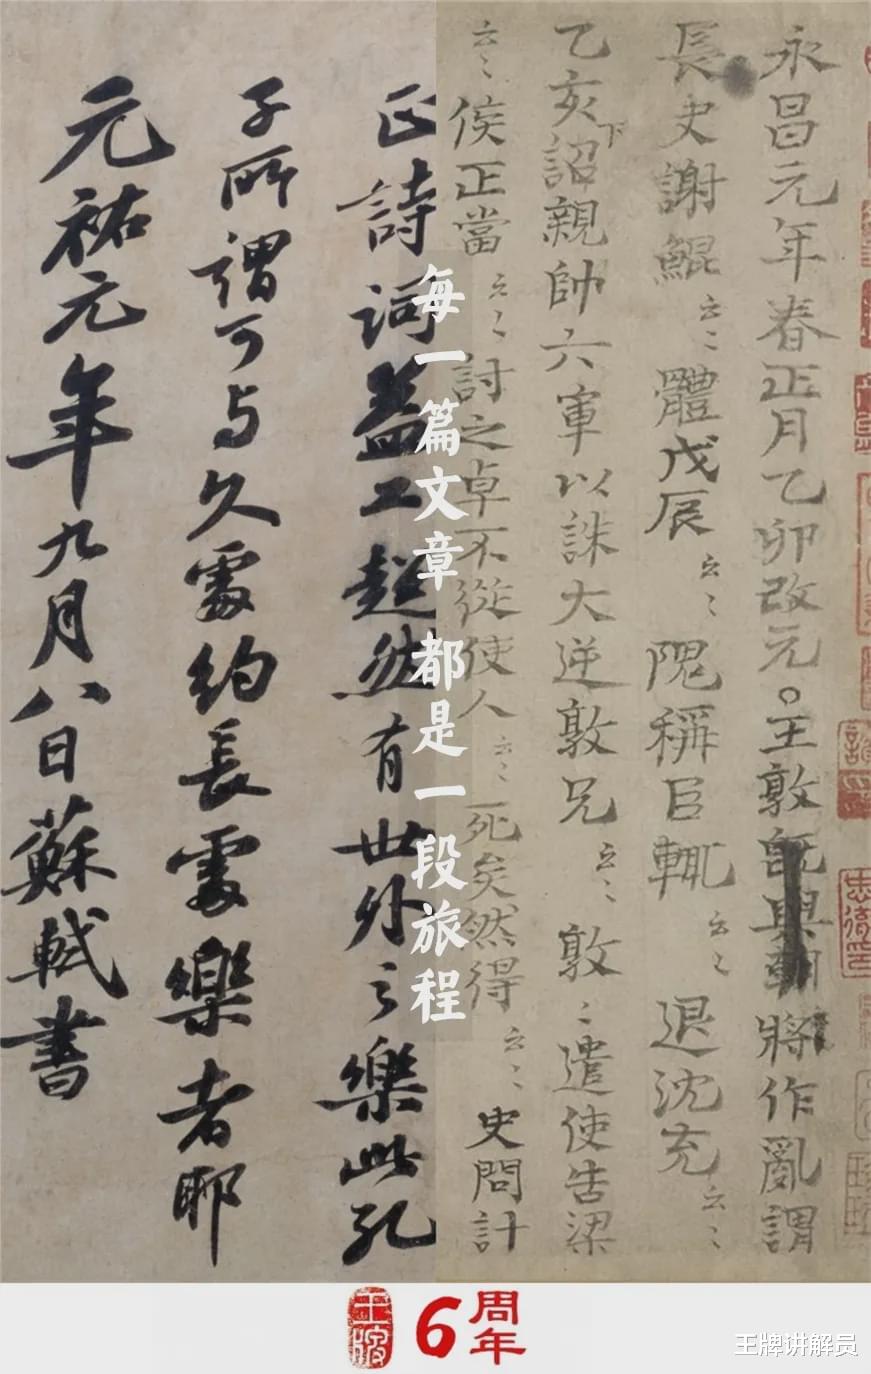 永昌元年春正月乙卯改元。王敦既與朝將作亂謂
長史謝鯤云〻體戊辰云〻隗稱臣輒云〻退沈充云〻
乙亥下詔親帥六軍以誅大逆敦兄云〻敦〻遣使告梁
云〻侯正當云〻討之卓不從使人云〻死矣然得云〻史問計
每一篇文章 都是一段旅程
正詩詞益工超然有世外之樂此孔
子所謂可与久處約長處樂者耶
元祐元年九月八日蘇軾書
6周年
王牌讲解员